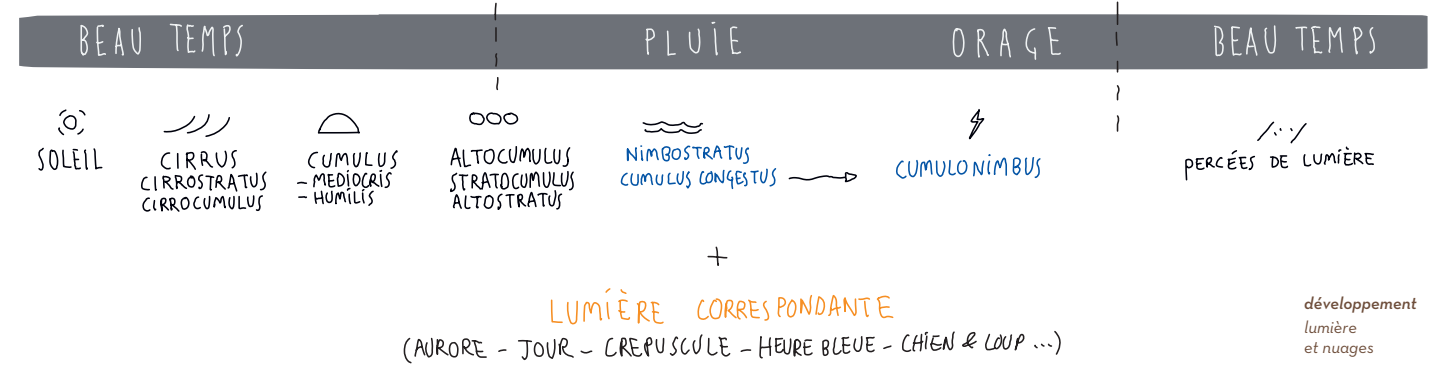 BEAU TEMPS
PLUIE
ORAGE
BEAU TEMPS
SOLEIL
CIRRUS
CIRROSTRATUS
CIRROCUMULUS
CUMULUS
- MEDIOCRIS
- HUMILIS
ALTOCUMULUS
STRATOCUMULUS
ALTOSTRATUS
NIMBOSTRATUS
CUMULUS CONGESTUS
CUMULONIMBUS
PERCÉES DE LUMIÈRE
+
LUMIÈRE CORRESPONDANTE
(AURORE - JOUR - CREPUSCULE - HEURE BLEUE - CHIEN & LOUP ...)
développement
lumière
et nuages